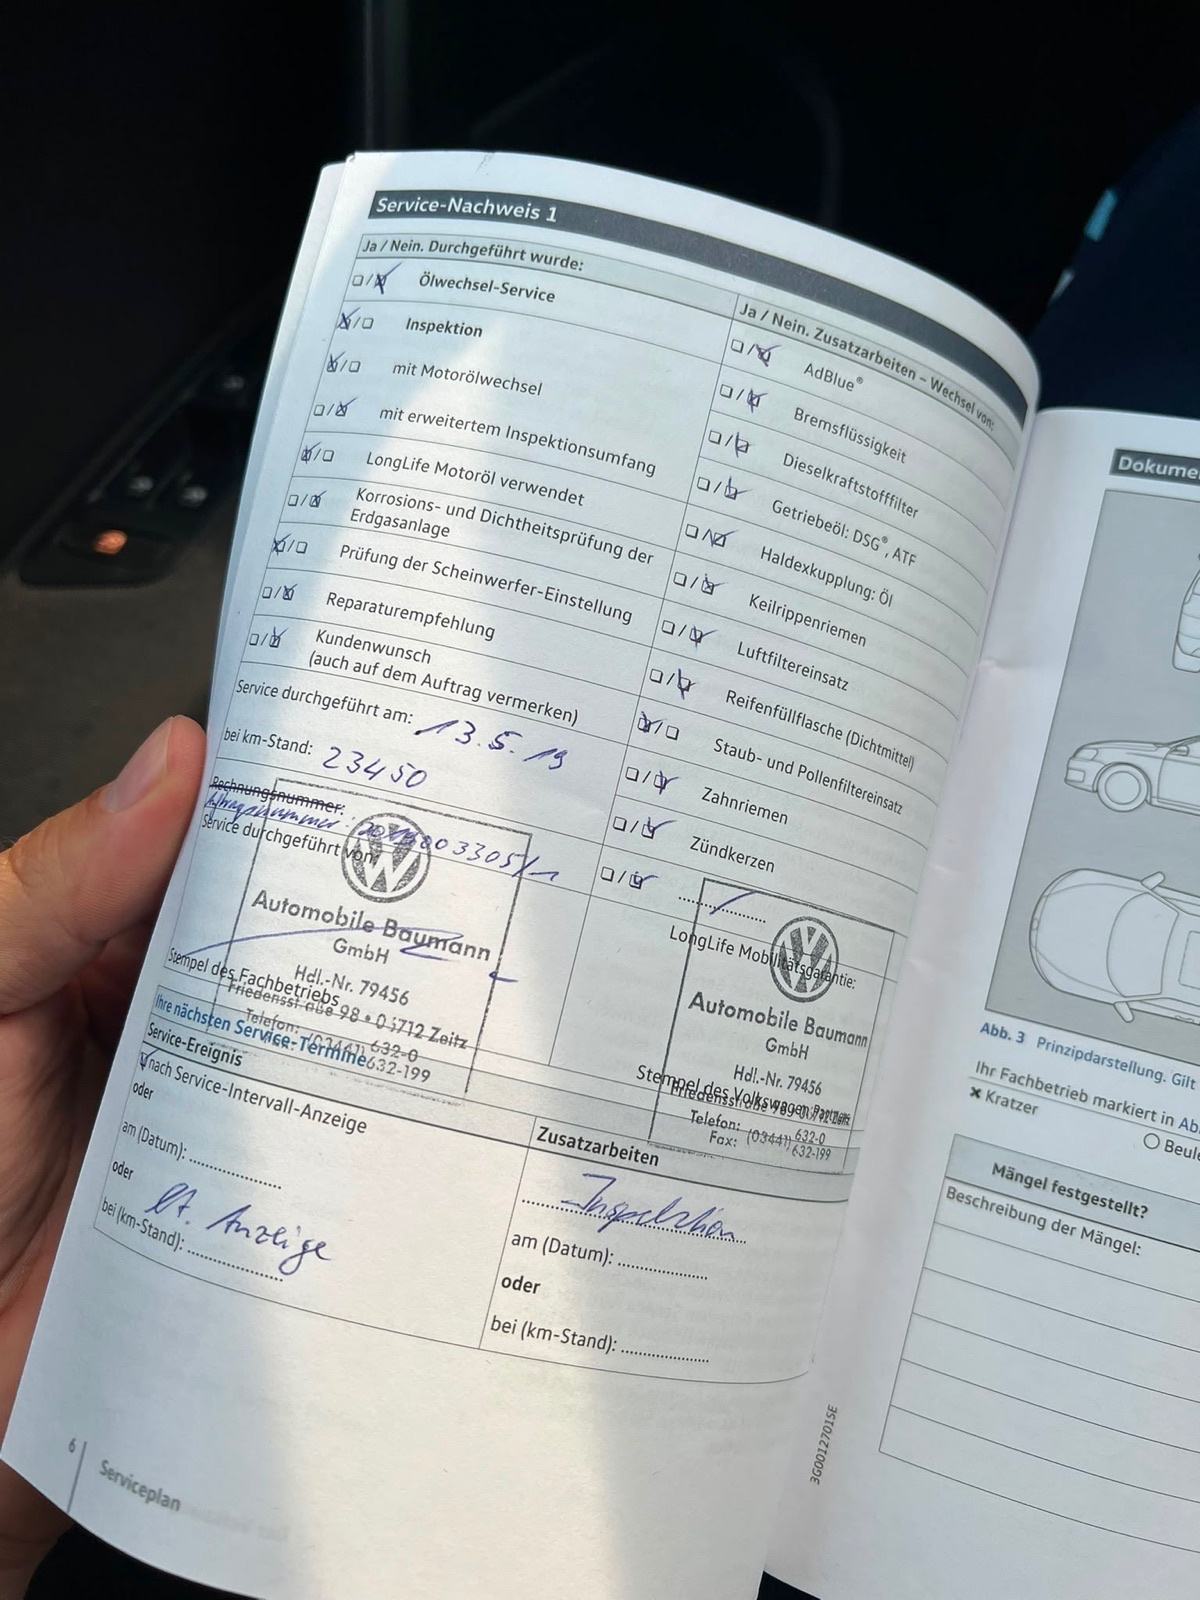 Service-Nachweis 1
Ja / Nein. Durchgeführt wurde:
Ölwechsel-Service
Inspektion
mit Motorölwechsel
mit erweitertem Inspektionsumfang
LongLife Motoröl verwendet
Korrosions- und Dichtheitsprüfung der
Erdgasanlage
Prüfung der Scheinwerfer-Einstellung
Reparaturempfehlung
Kundenwunsch
(auch auf dem Auftrag vermerken)
Service durchgeführt am: 13.5.19
bei km-Stand: 23450
Rechnungsnummer:
Auftragsnummer:
Service durchgeführt von:
Automobile Baumann
GmbH
Hdl.-Nr. 79456
Friedensstraße 98 • 06712 Zeitz
Telefon: (03441) 632-0
632-199
Stempel des Fachbetriebs
Ja / Nein. Zusatzarbeiten – Wechsel von:
AdBlue®
Bremsflüssigkeit
Dieselkraftstofffilter
Getriebeöl: DSG®, ATF
Haldexkupplung: Öl
Keilrippenriemen
Luftfiltereinsatz
Reifenfüllflasche (Dichtmittel)
Staub- und Pollenfiltereinsatz
Zahnriemen
Zündkerzen
LongLife Mobilitätsgarantie:
Automobile Baumann
GmbH
Hdl.-Nr. 79456
Telefon: (03441) 632-0
Fax: 632-199
Stempel des Volkswagen Partners
Ihre nächsten Service-Termine
Service-Ereignis
nach Service-Intervall-Anzeige
oder
am (Datum):
oder
lt. Anzeige
bei (km-Stand):
Zusatzarbeiten
Inspektion
am (Datum):
oder
bei (km-Stand):
6
Serviceplan
3G0012701SE
Dokume
Abb. 3 Prinzipdarstellung. Gilt
Ihr Fachbetrieb markiert in Ab
Kratzer
Beule
Mängel festgestellt?
Beschreibung der Mängel: